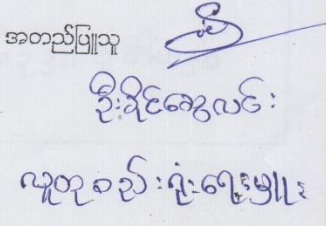 အတည်ပြုသူ
ဦးခိုင်ဆွေလင်း
လူထုစည်းရုံးရေးမှူး